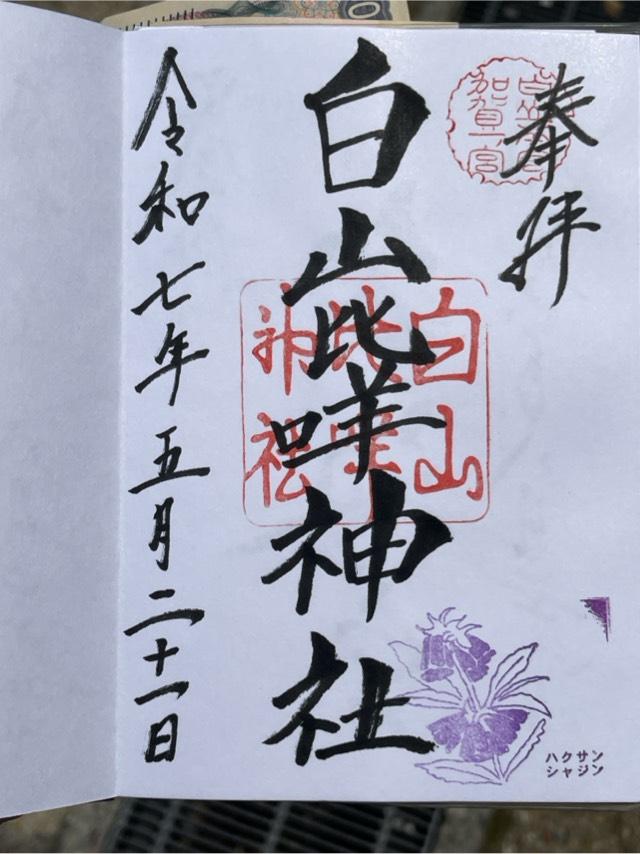 奉拝
加賀一宮
白山比咩神社
白山
神社
令和七年五月二十一日
ハクサン
シャジン